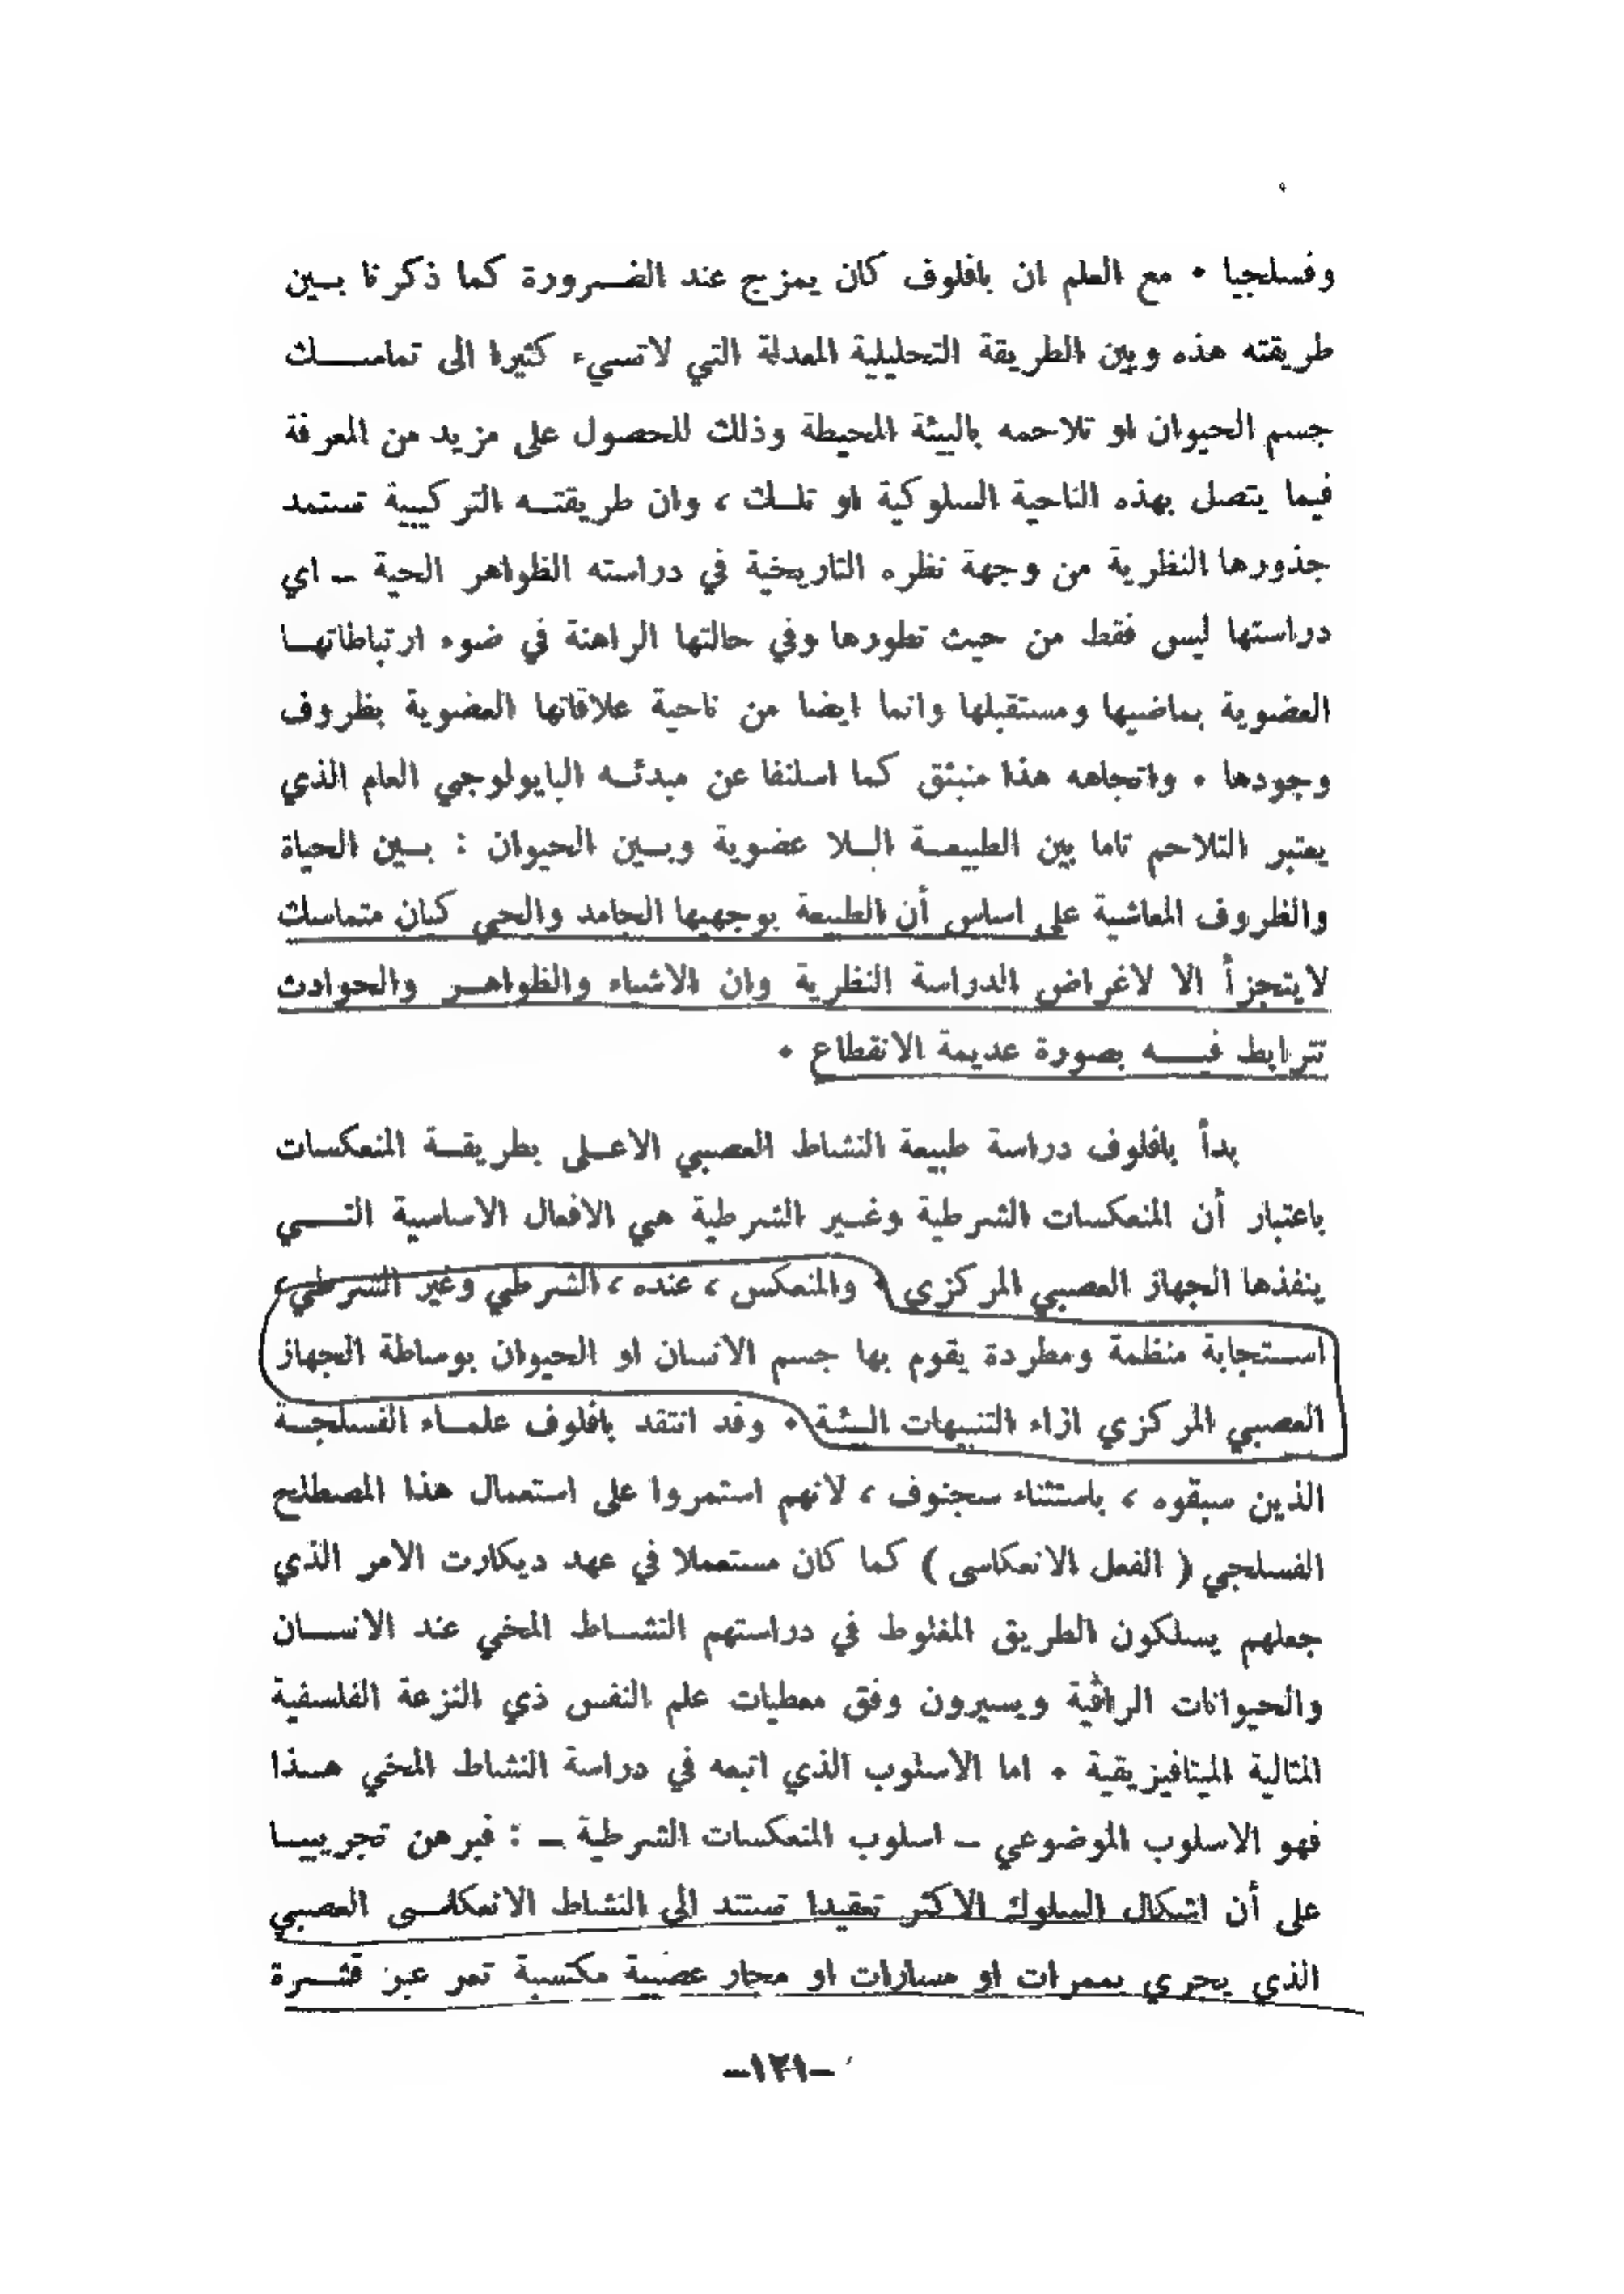 وفسلجيا • مع العلم ان بافلوف كان يمزج عند الضرورة كما ذكرنا بين
طريقته هذه وبين الطريقة التحليلية المعدلة التي لاتسيء كثيرا الى تماسك
جسم الحيوان او تلاحمه بالبيئة المحيطة وذلك للحصول على مزيد من المعرفة
فيما يتصل بهذه الناحية السلوكية او تلك ، وان طريقته التركيبية تستمد
جذورها النظرية من وجهة نظره التاريخية في دراسته الظواهر الحية – اي
دراستها ليس فقط من حيث تطورها وفي حالتها الراهنة في ضوء ارتباطاتها
العضوية بماضيها ومستقبلها وانما ايضا من ناحية علاقاتها العضوية بظروف
وجودها • واتجاهه هذا منبثق كما اسلفنا عن مبدئه البايولوجي العام الذي
يعتبر التلاحم تاما بين الطبيعة اللا عضوية وبين الحيوان : بين الحياة
والظروف المعاشية على اساس أن الطبيعة بوجهيها الجامد والحي كيان متماسك
لايتجزأ الا لاغراض الدراسة النظرية وان الاشياء والظواهر والحوادث
تترابط فيه بصورة عديمة الانقطاع •
بدأ بافلوف دراسة طبيعة النشاط العصبي الاعلى بطريقة المنعكسات
باعتبار أن المنعكسات الشرطية وغير الشرطية هي الافعال الاساسية التي
ينفذها الجهاز العصبي المركزي • والمنعكس ، عنده ، الشرطي وغير الشرطي ،
استجابة منظمة ومطردة يقوم بها جسم الانسان او الحيوان بوساطة الجهاز
العصبي المركزي ازاء التنبيهات البيئة • وقد انتقد بافلوف علماء الفسلجة
الذين سبقوه ، باستثناء سجنوف ، لانهم استمروا على استعمال هذا المصطلح
الفسلجي ( الفعل الانعكاسى ) كما كان مستعملا في عهد ديكارت الامر الذي
جعلهم يسلكون الطريق المغلوط في دراستهم النشاط المخي عند الانسان
والحيوانات الراقية ويسيرون وفق معطيات علم النفس ذي النزعة الفلسفية
المثالية الميتافيزيقية • اما الاسلوب الذي اتبعه في دراسة النشاط المخي هذا
فهو الاسلوب الموضوعي – اسلوب المنعكسات الشرطية – : فبرهن تجريبيا
على أن اشكال السلوك الاكثر تعقيدا تستند الى النشاط الانعكاسى العصبي
الذي يجري بممرات او مسارات او مجار عصبية مكتسبة تمر عبر قشرة
–١٢١–